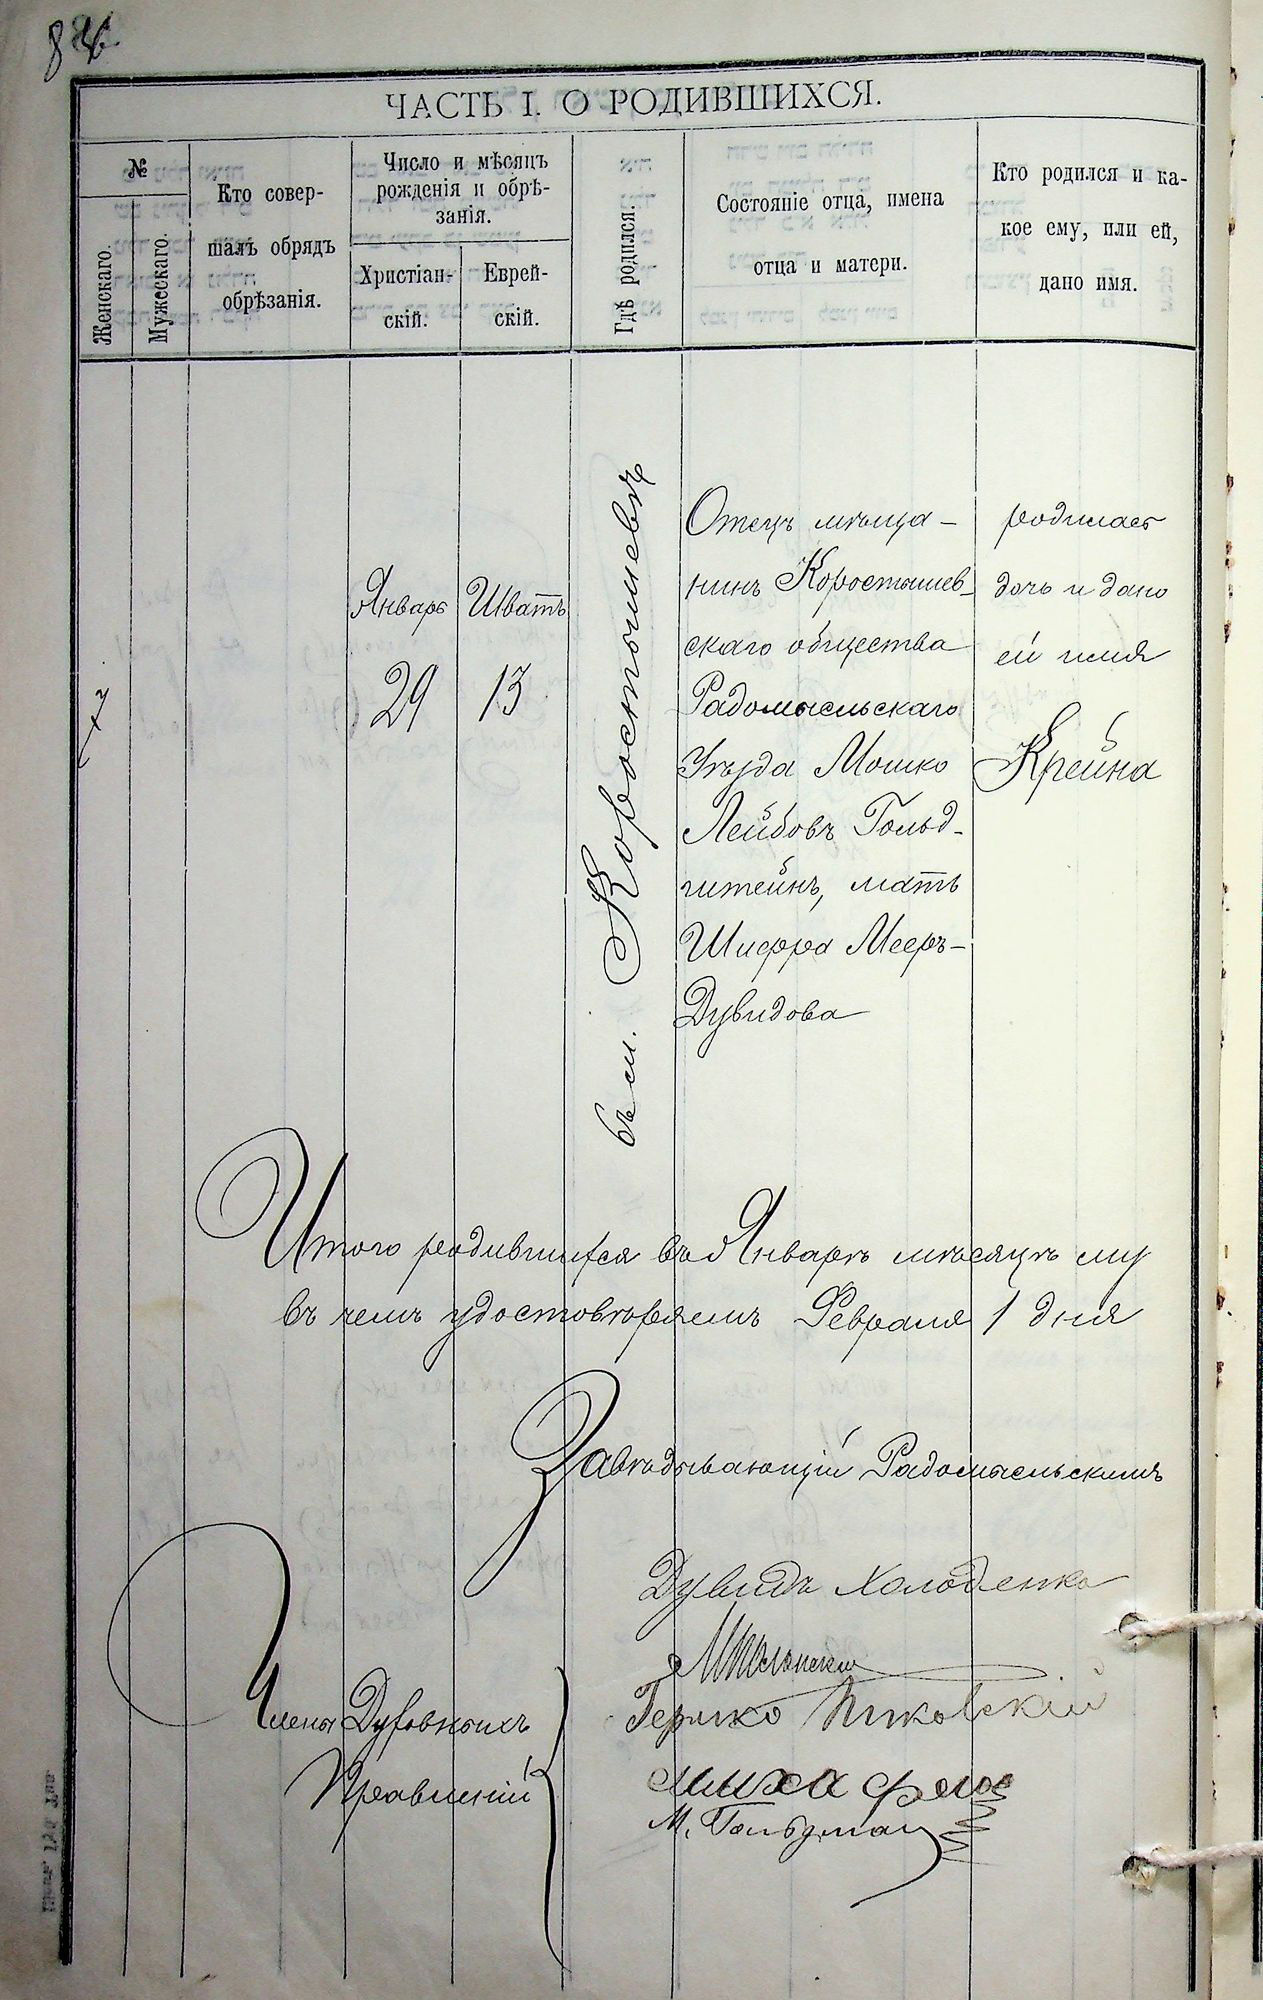 ЧАСТЬ I. О РОДИВШИХСЯ.
№
Женскаго.
Мужескаго.
Кто совер-
шалъ обрядъ
обрѣзанія.
Число и мѣсяцъ
рожденія и обрѣ-
занія.
Христіан-
скій.
Еврей-
скій.
Гдѣ родился.
Состояніе отца, имена
отца и матери.
Кто родился и ка-
кое ему, или ей,
дано имя.
7
Январь
29
Шватъ
13
въ м. Коростышевѣ
Отецъ мѣща-
нинъ Коростышев-
скаго общества
Радомысльскаго
Уѣзда Мошко
Лейбовъ Гольд-
штейнъ, мать
Шифра Мееръ-
Дувидова
родилась
дочь и дано
ей имя
Крейна
Итого родившихся въ Январѣ мѣсяцѣ му
въ чемъ удостовѣряемъ Февраля 1 дня
Завѣдывающій Радомысльскимъ
Дувидъ Холоденко
Члены Духовныхъ
Правленій
Гершко
М. Гольдман